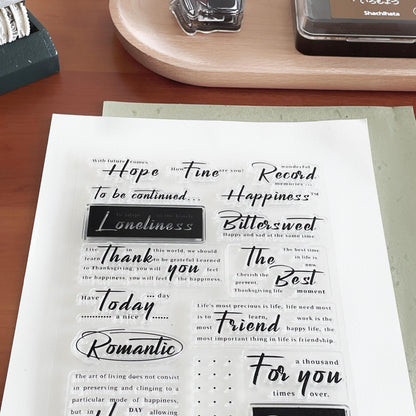 いろもよう
Shachihata
With future comes
Hope
How Fine are you!
wonderful
Record
memories ...
To be continued...
Happiness™
Loneliness
Bittersweet
Happy and sad at the same time
Thank you
in this world, we should
learn to be grateful learned
to Thanksgiving, you will feel
the happiness, you will feel the happiness.
The Best
The best time
in life is
now
Cherish the
present,
Thanksgiving life moment
Have Today ... day
...... a nice ......
Life's most precious is life, life need most
is to learn, work is the
most Friend happy life, the
most important thing in life is friendship.
Romantic
For you
a thousand
times over.
The art of living does not consist
in preserving and clinging to a
particular mode of happiness,
but in DAY allowing